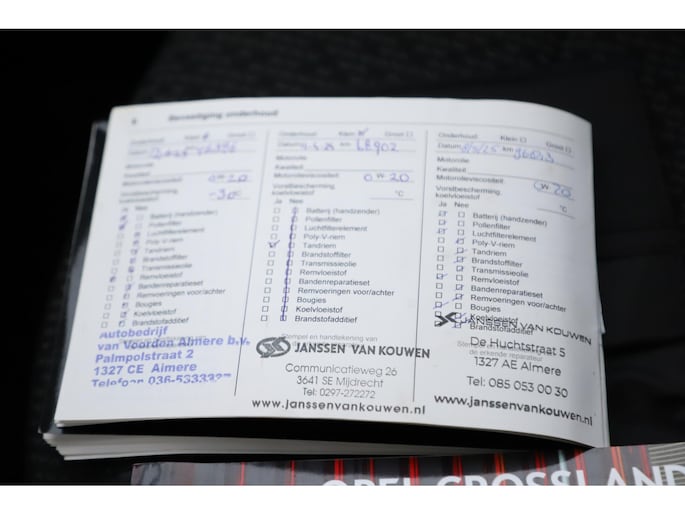 6 Bevestiging onderhoud
Onderhoud Klein Groot
Datum
Motorolie
Kwaliteit
Motorolieviscositeit 0W20
Vorstbescherming,
koelvloeistof -30°C
Ja Nee
Batterij (handzender)
Pollenfilter
Luchtfilterelement
Poly-V-riem
Tandriem
Brandstoffilter
Transmissieolie
Remvloeistof
Bandenreparatieset
Remvoeringen voor/achter
Bougies
Koelvloeistof
Brandstofadditief
Autobedrijf
van Voorden Almere b.v.
Palmpolstraat 2
1327 CE Almere
Telefoon 036-5333327
Onderhoud Klein Groot
Datum km 68902
Motorolie
Kwaliteit
Motorolieviscositeit 0W20
Vorstbescherming,
koelvloeistof °C
Ja Nee
Batterij (handzender)
Pollenfilter
Luchtfilterelement
Poly-V-riem
Tandriem
Brandstoffilter
Transmissieolie
Remvloeistof
Bandenreparatieset
Remvoeringen voor/achter
Bougies
Koelvloeistof
Brandstofadditief
Stempel en handtekening van
JANSSEN VAN KOUWEN
Communicatieweg 26
3641 SE Mijdrecht
Tel: 0297-272272
www.janssenvankouwen.nl
Onderhoud Klein Groot
Datum km
Motorolie
Kwaliteit
Motorolieviscositeit 0W20
Vorstbescherming,
koelvloeistof °C
Ja Nee
Batterij (handzender)
Pollenfilter
Luchtfilterelement
Poly-V-riem
Tandriem
Brandstoffilter
Transmissieolie
Remvloeistof
Bandenreparatieset
Remvoeringen voor/achter
Bougies
Koelvloeistof
Brandstofadditief
JANSSEN VAN KOUWEN
de erkende reparateur
De Huchtstraat 5
1327 AE Almere
Tel: 085 053 00 30
www.janssenvankouwen.nl
OPEL CROSSLAND